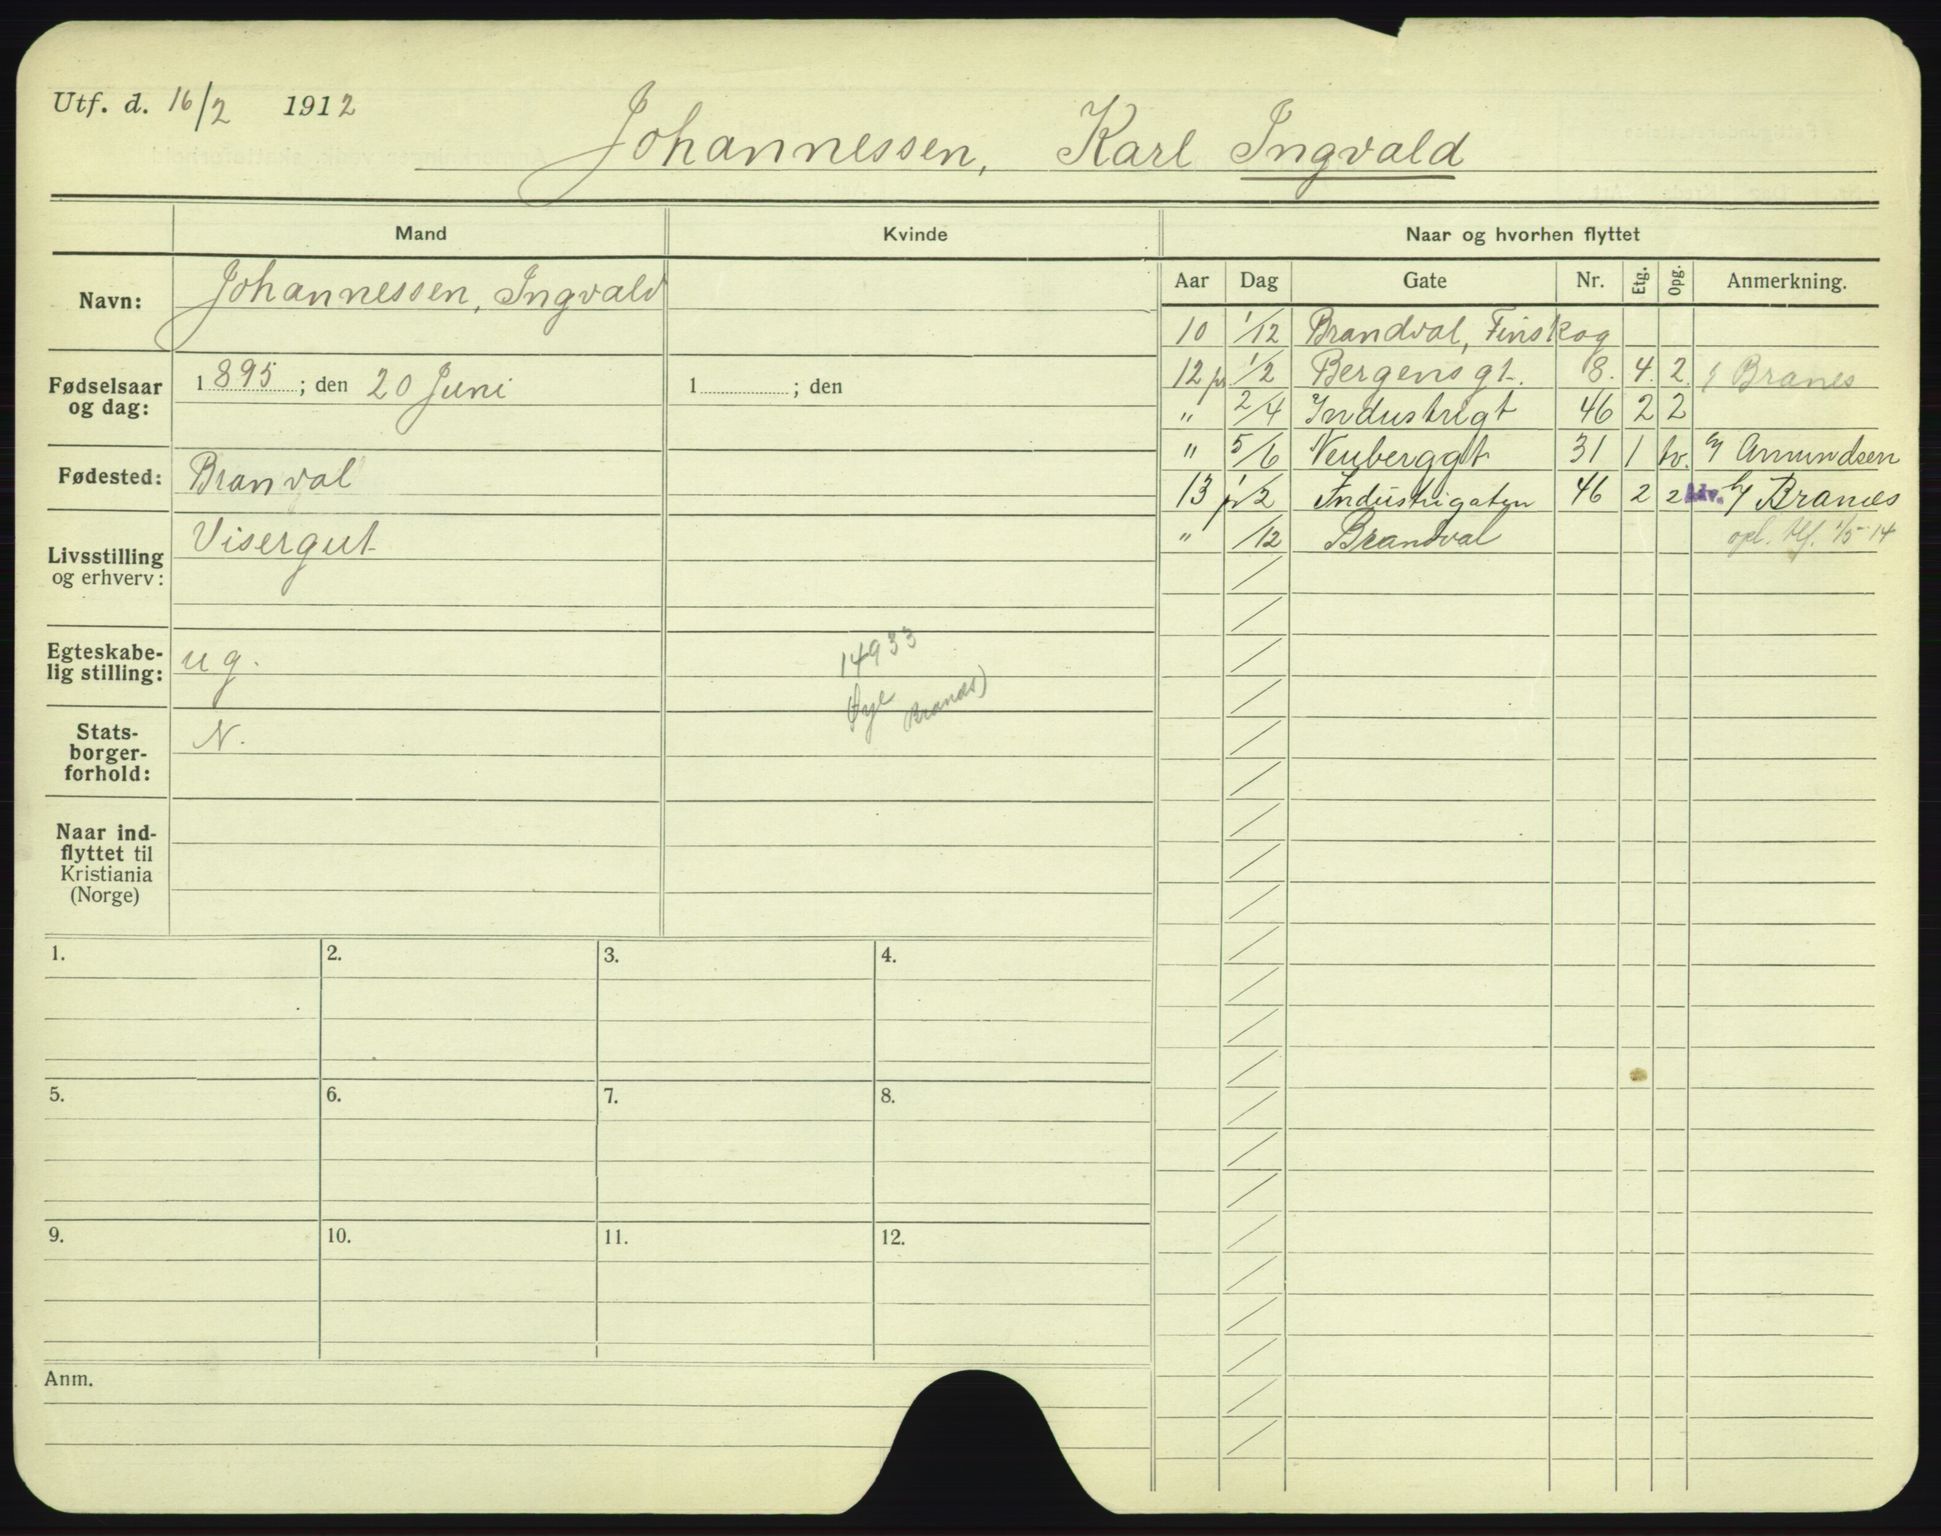 Utf. d. 16/2 1912
Johannessen, Karl Ingvald
Mand
Kvinde
Naar og hvorhen flyttet
Navn: Johannessen, Ingvald
Fødselsaar og dag: 1895; den 20 Juni
1 ; den
Fødested: Branval
Livsstilling og erhverv: Visergut
Egteskabe-
lig stilling: ug.
Stats-
borger-
forhold: N.
Naar ind-
flyttet til
Kristiania
(Norge)
14933
Øye Branæs)
Aar Dag Gate Nr. Etg. Opg. Anmerkning.
10 1/12 Brandval, Finskog
12 pr 1/2 Bergensgt. 8. 4. 2. Branes
" 2/4 Industrigt 46 2 2
" 5/6 Neuberggt 31 1 tv. Amundsen
13 pr 1/2 Industrigaten 46 2 2 Adv. h/ Branæs
" /12 Brandval opl. 1/5-14
1. 2. 3. 4.
5. 6. 7. 8.
9. 10. 11. 12.
Anm.